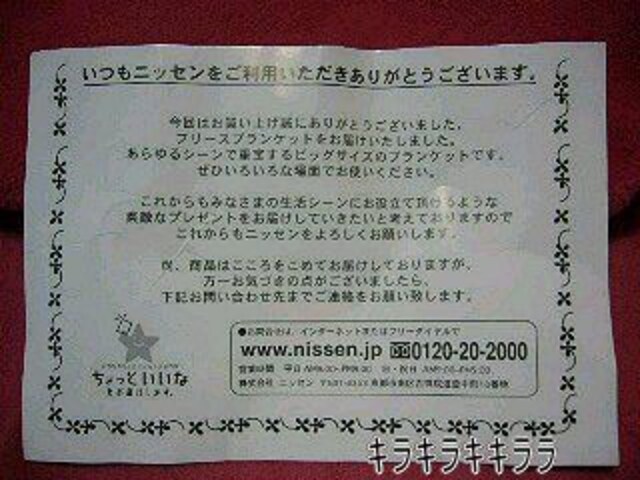 いつもニッセンをご利用いただきありがとうございます。
今回はお買い上げ誠にありがとうございました。
フリースブランケットをお届けいたしました。
あらゆるシーンで重宝するビッグサイズのブランケットです。
ぜひいろいろな場面でお使いください。
これからもみなさまの生活シーンにお役立て頂けるような
素敵なプレゼントをお届けしていきたいと考えておりますので
これからもニッセンをよろしくお願いします。
尚、商品はこころをこめてお届けしておりますが、
万一お気づきの点がございましたら、
下記お問い合わせ先までご連絡をお願い致します。
ちょっといいな
をお届けします。
●お問合せは、インターネットまたはフリーダイヤルで
www.nissen.jp 0120-20-2000
営業時間 平日 AM9:00~PM9:00 日・祝日 AM9:00~PM5:00
株式会社 ニッセン
キラキラキキララ